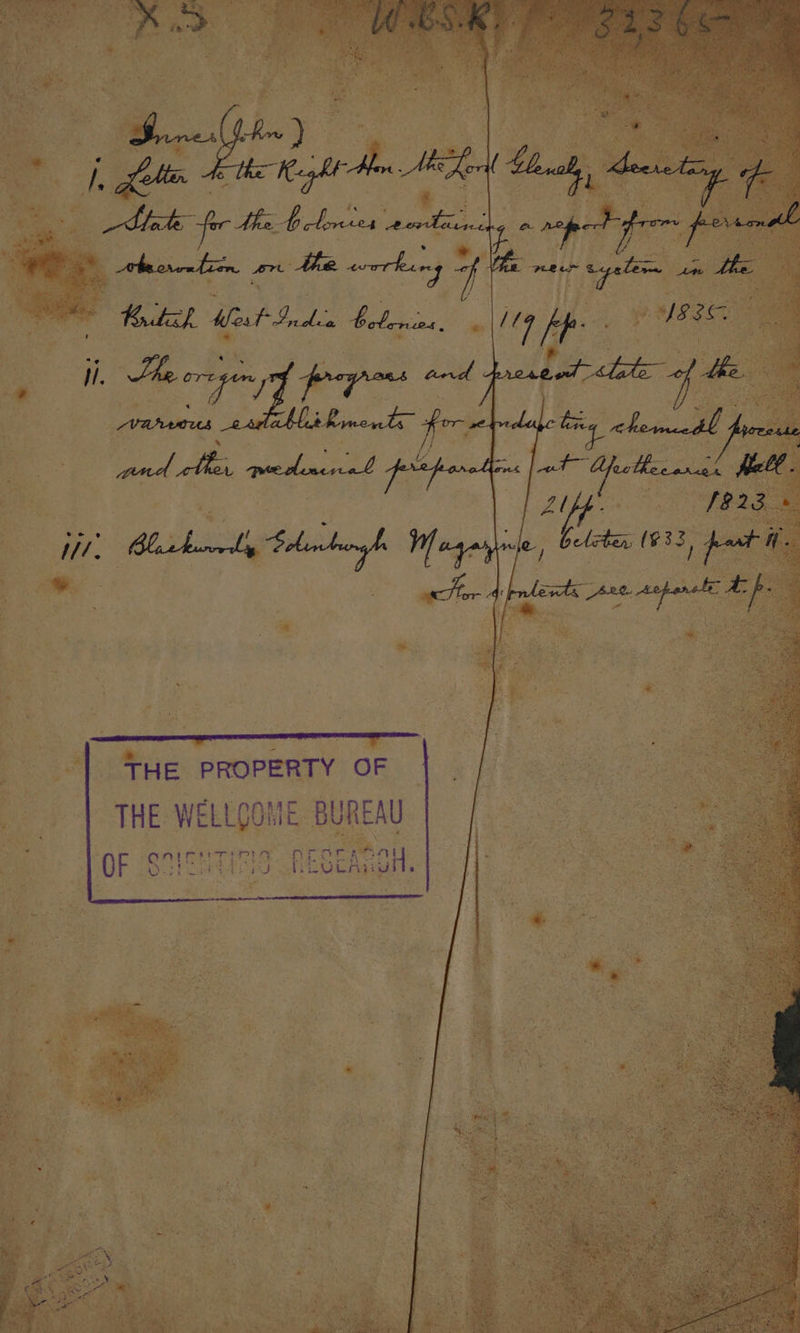 X.S W.B.S.R. 3236
Innes (John)
i. Letter to the Right Hon. the Lord Glenelg, Secretary of
State for the Colonies containing a report from personal
observation on the working of the new system in the
British West India Colonies. 119 pp. 1835.
ii. The origin, progress and present state of the
various establishments for conducting chemical processes
and other medicinal preparations at Apothecaries Hall.
21 pp. 1823.
iii. Blackwood's Edinburgh Magazine, October 1833, part ii.
For contents see separate t.p.
THE PROPERTY OF
THE WELLCOME BUREAU
OF SCIENTIFIC RESEARCH.